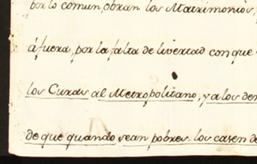 por lo comun, obran los Matrimonios,
á fuera, por la falta de livertad con que
los Curas al Metropolitano, y a los de
de que quando sean pobres los casen de